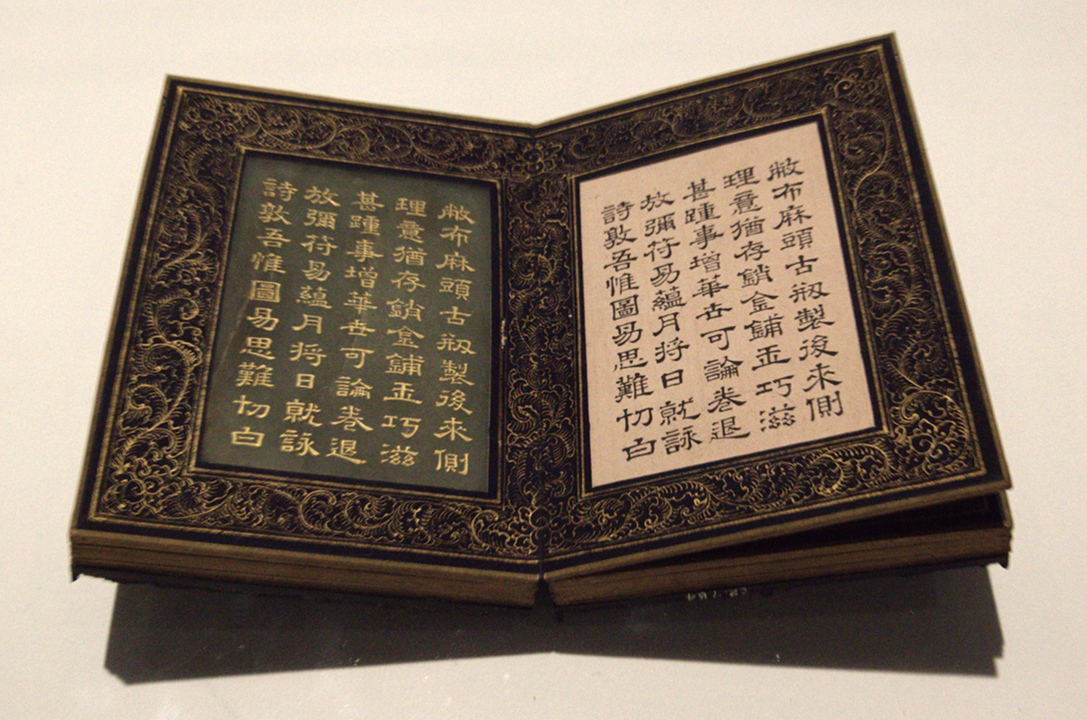 敝布麻頭古剏製後來側
理意猶存銷金鋪玉巧滋
甚踵事增華世可論卷退
放彌符易蘊月將日就詠
詩敦吾惟圖易思難切白
敝布麻頭古剏製後來側
理意猶存銷金鋪玉巧滋
甚踵事增華世可論卷退
放彌符易蘊月將日就詠
詩敦吾惟圖易思難切白